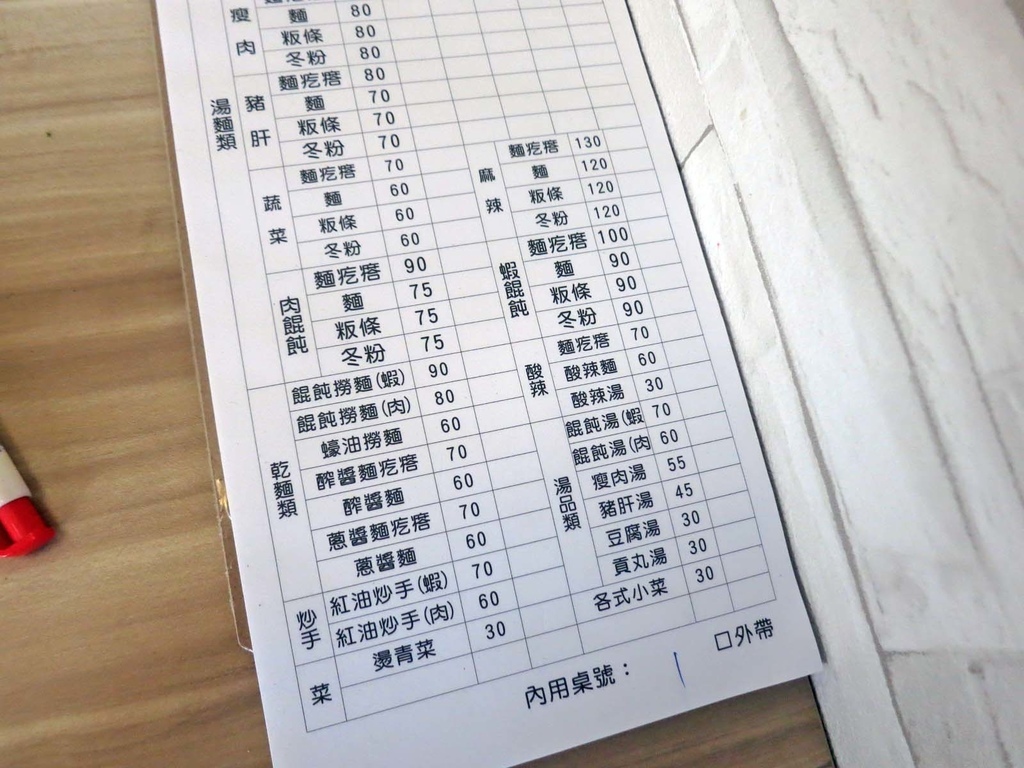 湯麵類
瘦肉
麵 80
粄條 80
冬粉 80
豬肝
麵疙瘩 80
麵 70
粄條 70
冬粉 70
蔬菜
麵疙瘩 70
麵 60
粄條 60
冬粉 60
肉餛飩
麵疙瘩 90
麵 75
粄條 75
冬粉 75
乾麵類
餛飩撈麵(蝦) 90
餛飩撈麵(肉) 80
蠔油撈麵 60
酢醬麵疙瘩 70
酢醬麵 60
蔥醬麵疙瘩 70
蔥醬麵 60
炒手
紅油炒手(蝦) 70
紅油炒手(肉) 60
菜
燙青菜 30
麻辣
麵疙瘩 130
麵 120
粄條 120
冬粉 120
蝦餛飩
麵疙瘩 100
麵 90
粄條 90
冬粉 90
酸辣
麵疙瘩 70
酸辣麵 60
酸辣湯 30
湯品類
餛飩湯(蝦 70
餛飩湯(肉 60
瘦肉湯 55
豬肝湯 45
豆腐湯 30
貢丸湯 30
各式小菜 30
內用桌號： 
□外帶